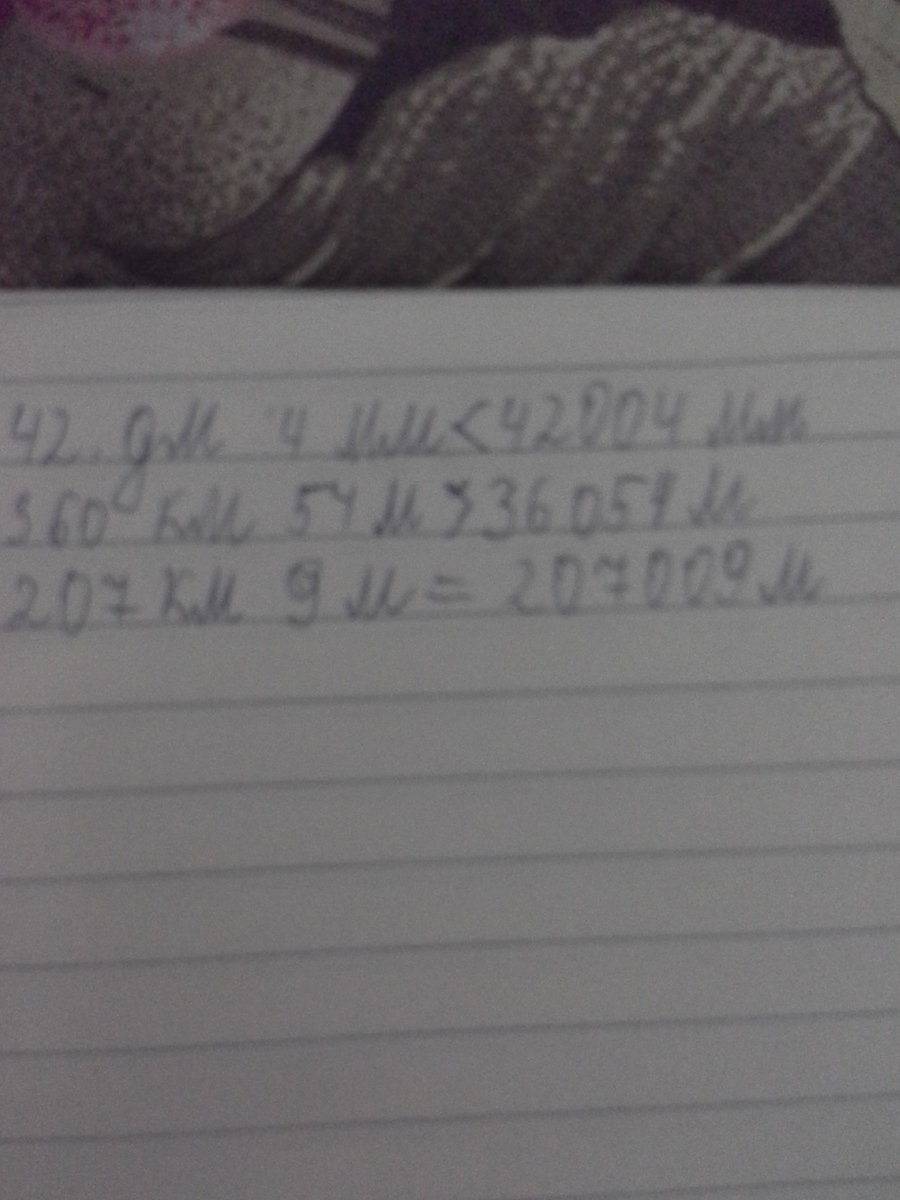 42. дм 4 мм < 42004 мм
360 км 54 м > 36054 м
207 км 9 м = 207009 м